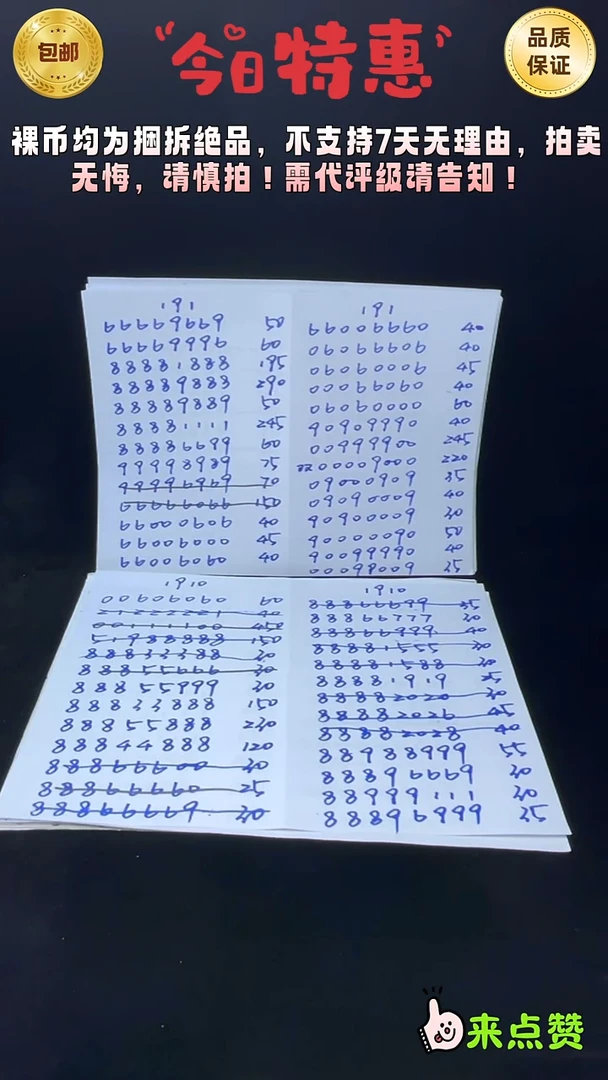 包邮
今日特惠
品质
保证
裸币均为捆拆绝品，不支持7天无理由，拍卖
无悔，请慎拍！需代评级请告知！
191
66669669 50
66669996 60
88881888 195
88889883 290
88889889 50
88881111 245
88886699 60
99998989 75
99996969 70
66666066 150
66000606 40
66006000 45
66006060 40
191
66006660 40
06066606 40
06060006 45
00066060 40
06060000 60
90909990 40
00999900 245
00009000 220
09000909 35
09090009 40
90900009 30
90000090 50
90099990 40
00098009 35
1910
00606060 60
21222221 40
00111100 450
51988888 150
88833388 30
88855666 30
88855999 30
88833888 150
88855888 230
88844888 120
88866600 30
88866660 25
88866669 30
1910
88866699 35
88866777 30
88866999 40
88881555 30
88881588 30
88881919 25
88882020 30
88882026 45
88882028 40
88988999 55
88896669 30
88999111 30
88896999 35
来点赞